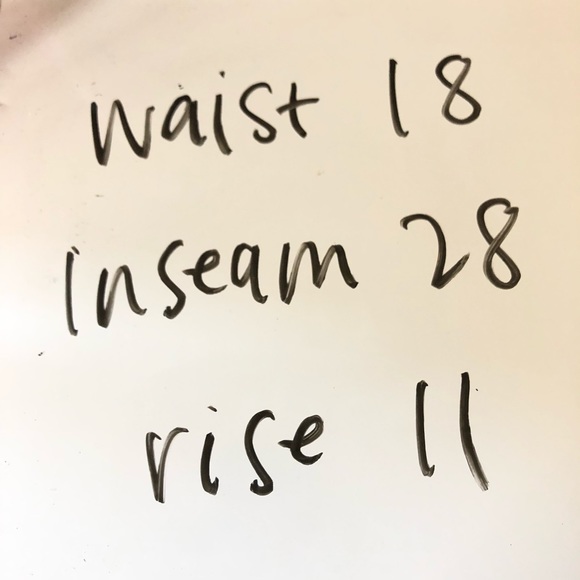 waist 18
inseam 28
rise 11